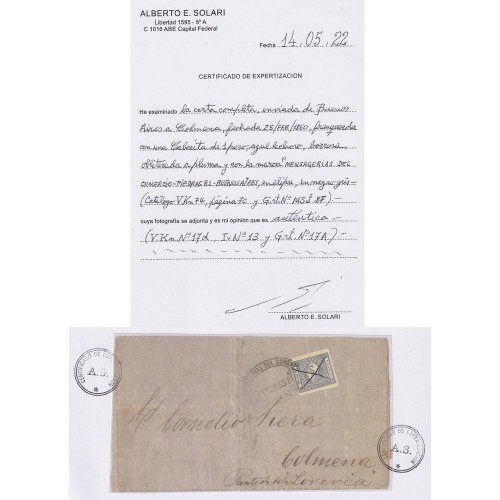 ALBERTO E. SOLARI
Libertad 1595 - 5º A
C 1016 ABE Capital Federal
Fecha 14.05.22
CERTIFICADO DE EXPERTIZACION
He examinado la carta completa, enviada de Buenos
Aires a Colmena, fechada 25/FEB/1860, franqueada
con una Cabecita de 1 peso, azul celeste, borrosa,
obliterada a pluma y con la marca "MENSAGERIAS DEL
COMERCIO-PIEDRAS 91-BUENOS AIRES, en elipse, en negro gris-
(Catálogo V.Kn 74, página 70 y G.J. Nº MSJ 37).-
cuya fotografía se adjunta y es mi opinión que es auténtica.-
(V.Kn Nº 17d, Iv Nº 13 y G.J. Nº 17A).-
ALBERTO E. SOLARI
CERTIFICADO DE EXPERTIZACION
A.S.
Dn Cornelio Viera
Colmena
Partido de Loveria
CERTIFICADO DE EXPERTIZACION
A.S.